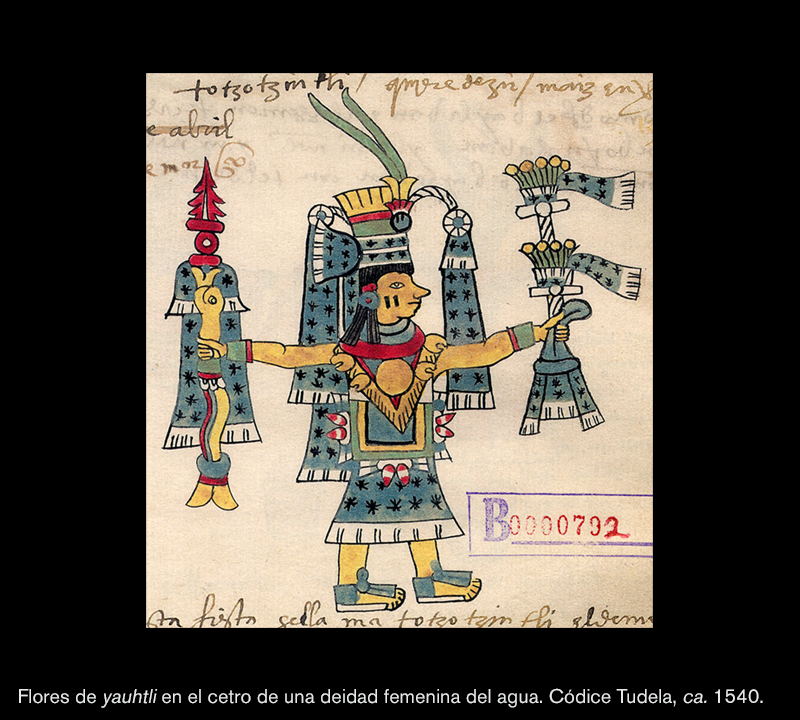 totzotzintli / quiere dezir / maiz en
e abril
B0000792
fiesta sella ma totzotzintli
Flores de yauhtli en el cetro de una deidad femenina del agua. Códice Tudela, ca. 1540.